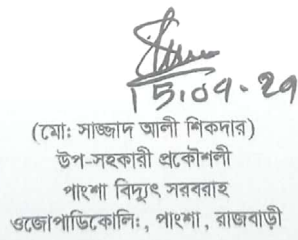 15.09.21
(মো: সাজ্জাদ আলী শিকদার)
উপ-সহকারী প্রকৌশলী
পাংশা বিদ্যুৎ সরবরাহ
ওজোপাডিকোলি:, পাংশা, রাজবাড়ী